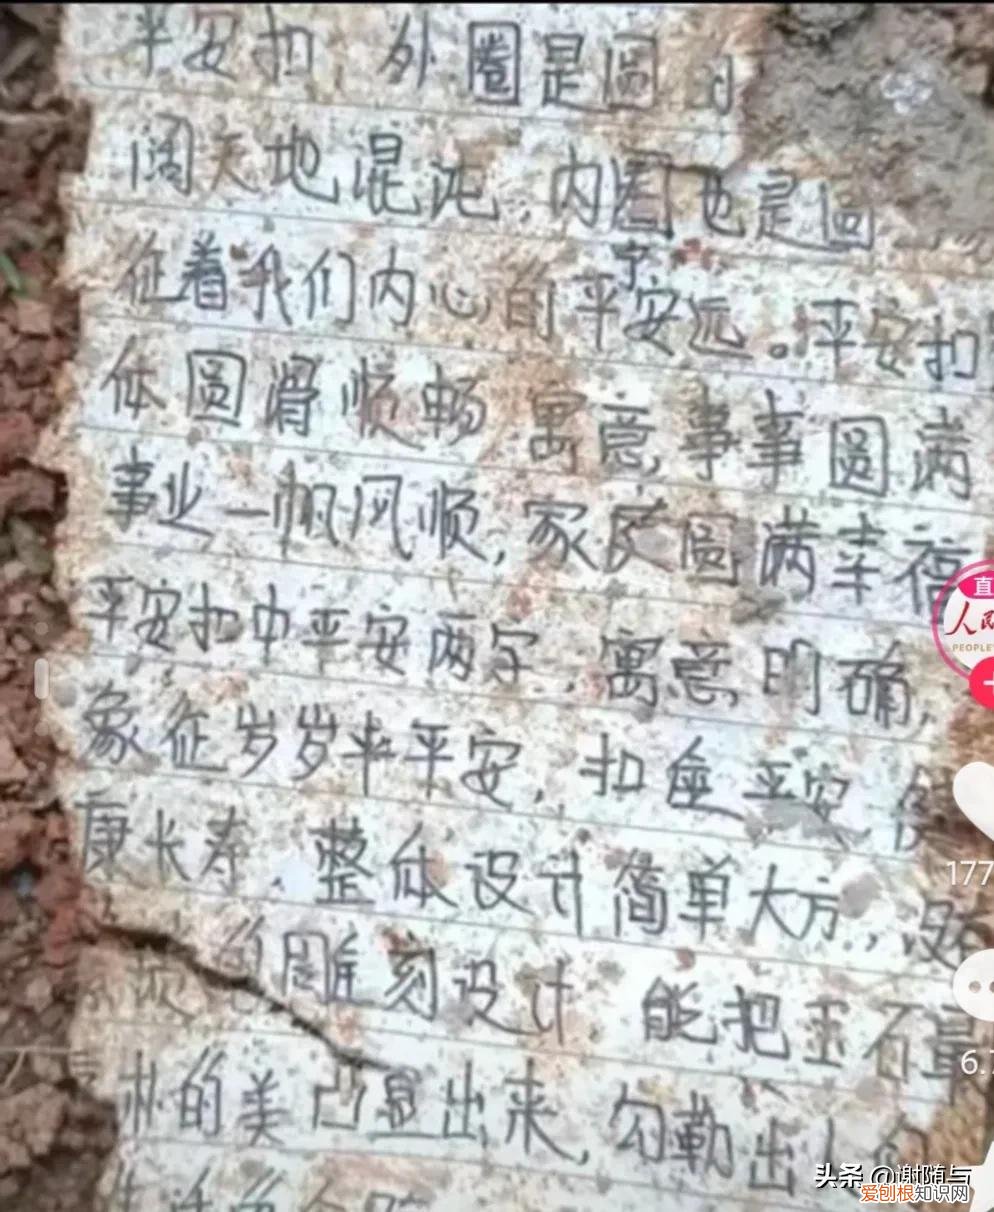 平安扣 外圈是圆的
阔天地混沌,内圈也是圆
征着我们内心的平安远。平安扣
宁
体圆滑顺畅 寓意,事事圆满
事业一帆风顺,家庭圆满幸福
平安扣中平安两字,寓意明确,
象征岁岁平安,扣金平安
康长寿、整体设计简单大方,,没
雕刻设计 能把玉石最
的美凸显出来,勾勒出
直
人民
PEOPLE'
177
6.
头条 @谢随与
爱刨根知识网